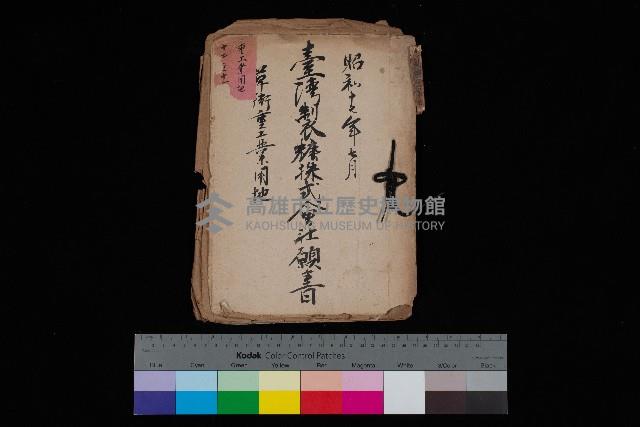 昭和十七年七月
臺灣製糖株式會社願書
草衙重工業用地
重工業用地
高雄市立歷史博物館
KAOHSIUNG MUSEUM OF HISTORY
Kodak Color Control Patches
Blue Cyan Green Yellow Red Magenta White 3/Color Black